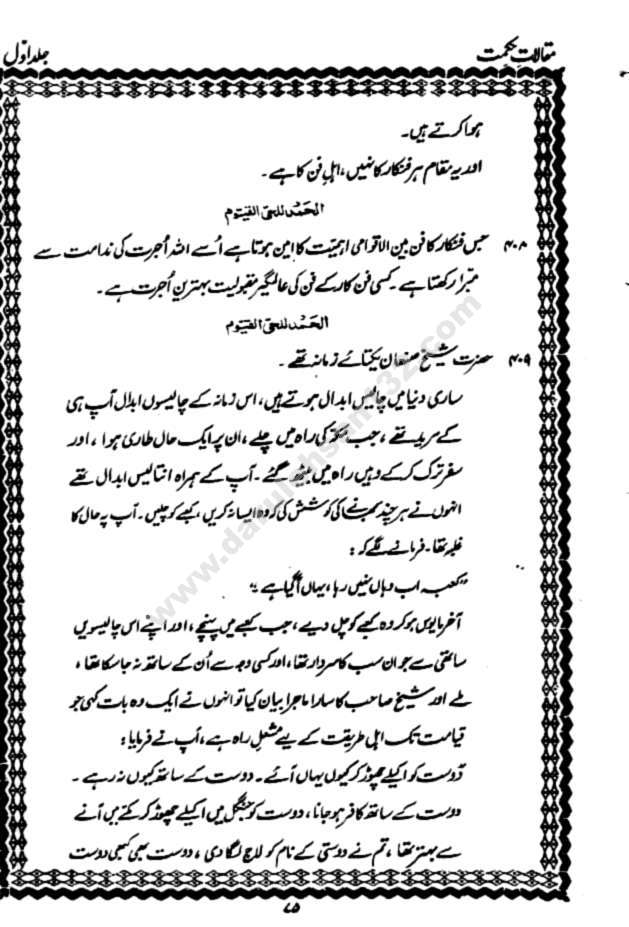 مقالاتِ حکمت
جلد اوّل
ہوا کرتے ہیں۔
اور یہ مقام ہر فنکار کا نہیں، اہلِ فن کا ہے۔
الحمدُ للحیّ القیّوم
۴۰۸ جس فنکار کا فن بین الاقوامی اہمیّت کا امین ہوتا ہے اُسے اللہ اُجرت کی ندامت سے
مبّرا رکھتا ہے۔ کسی فن کار کے فن کی عالمگیر مقبولیت بہترین اُجرت ہے۔
الحمدُ للحیّ القیّوم
۴۰۹ حضرت شیخ صنعان یکتائے زمانہ تھے۔
ساری دنیا میں چالیس ابدال ہوتے ہیں، اس زمانہ کے چالیسوں ابدال آپ ہی
کے مرید تھے، جب مکّہ کی راہ میں چلے، ان پر ایک حال طاری ہوا، اور
سفر ترک کر کے وہیں راہ میں بیٹھ گئے۔ آپ کے ہمراہ انتالیس ابدال تھے
انہوں نے ہر چند سمجھانے کی کوشش کی کہ وہ ایسا نہ کریں، کعبے کو چلیں۔ آپ پہ حال کا
غلبہ تھا۔ فرمانے لگے کہ:
"کعبہ اب وہاں نہیں رہا، یہاں آگیا ہے۔"
آخر مایوس ہو کر وہ کعبے کو چل دیے، جب کعبے میں پہنچے، اور اپنے اس چالیسویں
ساتھی سے جو ان سب کا سردار تھا، اور کسی وجہ سے اُن کے ساتھ نہ جا سکا تھا،
ملے اور شیخ صاحب کا سارا ماجرا بیان کیا تو انہوں نے ایک وہ بات کہی جو
قیامت تک اہلِ طریقت کے لیے مشعلِ راہ ہے، آپ نے فرمایا:
دوست کو اکیلے چھوڑ کر کیوں یہاں آئے۔ دوست کے ساتھ کیوں نہ رہے۔
دوست کے ساتھ کافر ہو جانا، دوست کو جنگل میں اکیلے چھوڑ کر مکّے میں آنے
سے بہتر تھا، تم نے دوستی کے نام کو لاج لگا دی، دوست بھی کبھی دوست
۷۵
www.darulehsan132.com